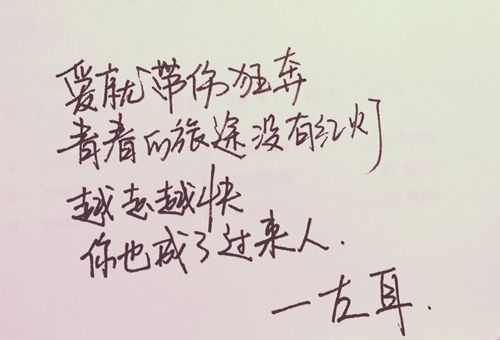 爱就带你狂奔
青春的旅途没有红灯
越走越快
你也成了过来人.
—左耳.